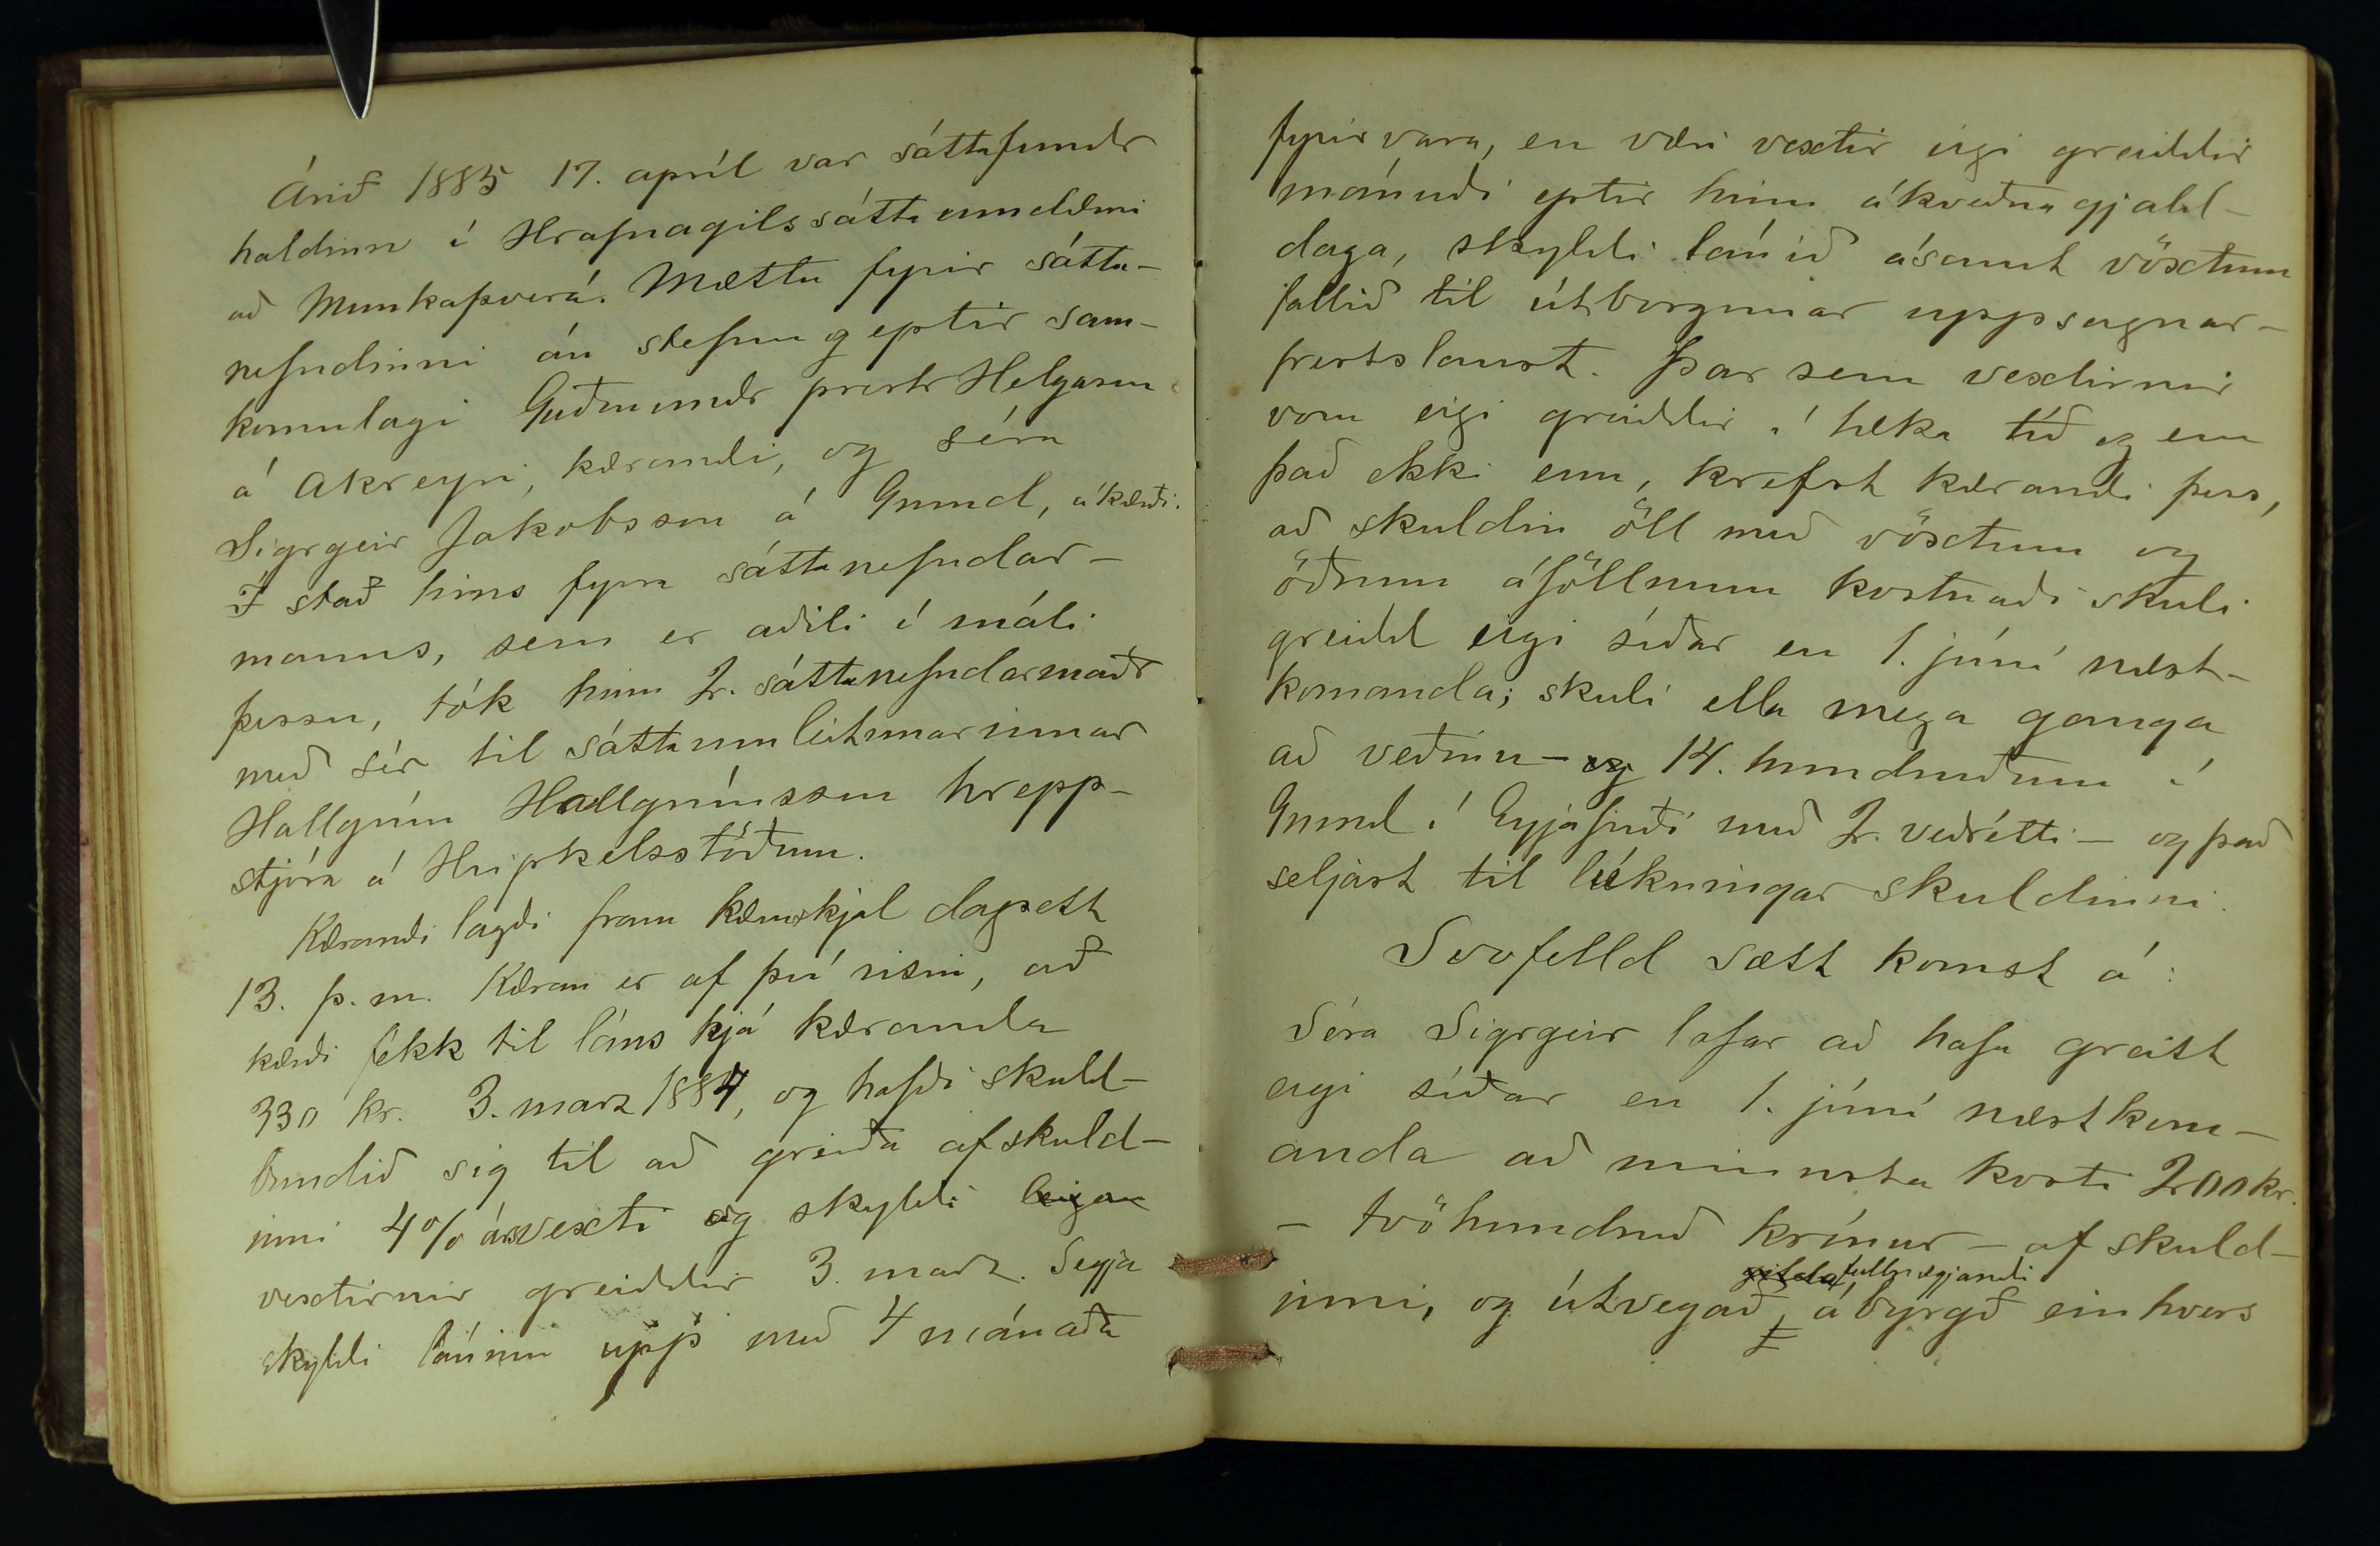 Árið 1885 17. apríl var sáttafundr
haldinn í Hrafnagilssáttaumdæmi
að Munkaþverá. Mættu fyrir sátta-
nefndinni án stefnu g eptir sam-
komulagi Guðmundr prestr Helgason
á Akreyri, kærandi, og séra
Sigrgeir Jakobsson á Grund, ákærði.
Í stað hins fyrra sáttanefndar-
manns, sem er aðili í máli
þessu, tók hinn 2. sáttanefndarmaðr
með sér til sáttaumleitunarinnar
Hallgrím Hallgrímsson hrepp-
stjóra á Hripkelsstöðum.
Kærandi lagði fram kæruskjal dagsett
13. þ. m. Kæran er af því risin, að
kærði fékk til láns hjá kæranda
330 kr. 3. marz 1884, og hafði skuld-
bundið sig til að greiða af skuld-
inni 4% ársvexti og skyldi leigan
vextirnir greiddir 3. marz. Segja
skyldi láninu upp með 4 mánaða
fyrirvara, en væri vextir eigi greiddir
mánuði eptir hinn ákveðna gjald-
daga, skyldi lánið ásamt vöxtum
fallið til útborgunar uppsagnar-
frestslaust. Þar sem vextirnir
voru eigi greiddir í tæka tíð og eru
það ekki enn, krefst kærandi þess,
að skuldin öll með vöxtum og
öðrum áföllnum kostnaði skuli
greidd eigi síðar en 1. júní næst-
komanda; skuli ella mega ganga
að veðinu - og 14. hundruðum í
Grund í Eyjafirði með 2. veðrétti - og það
seljast til lúkningar skuldinni.
Svofelld sætt komst á:
Séra Sigrgeir lofar að hafa greitt
eigi síðar en 1. júní næstkom-
anda að minnsta kosti 200 kr.
- tvöhundruð krónur - af skuld-
gilda fullnægjandi
inni, og útvegað ábyrgð einhvers